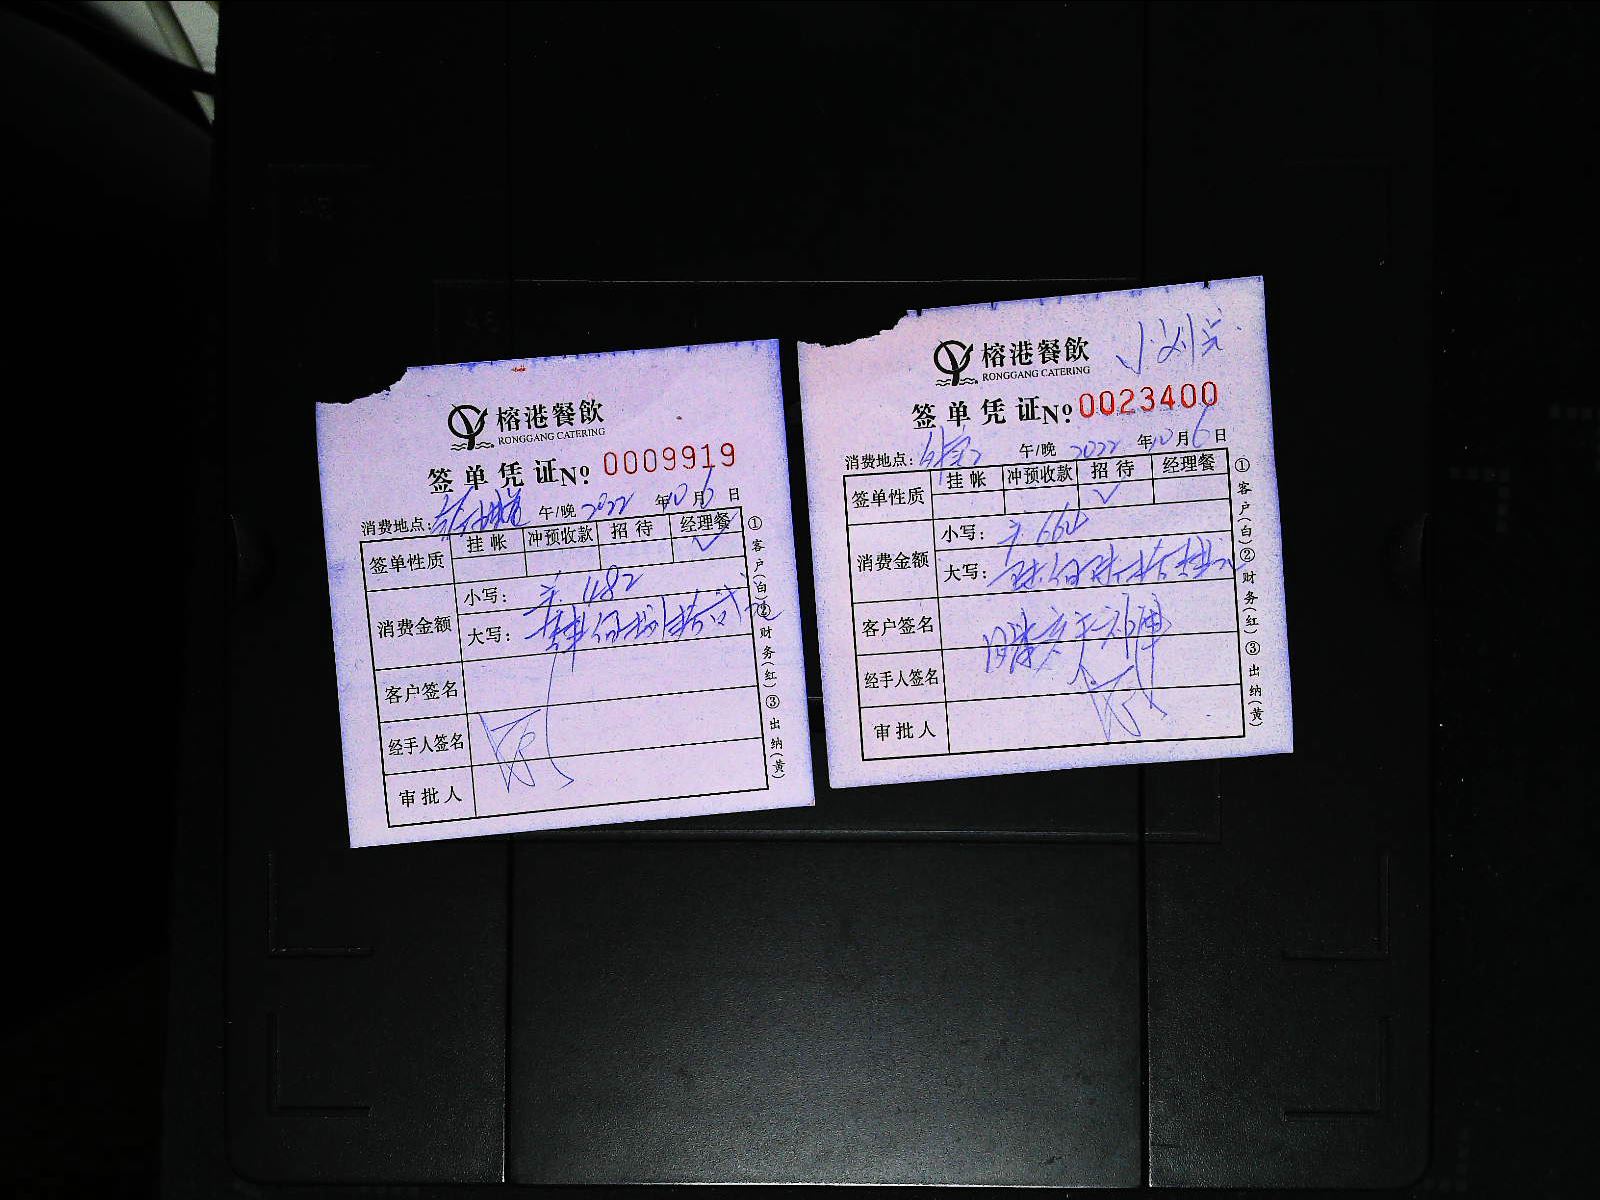 榕港餐飲
RONGGANG CATERING
签单凭证No: 0009919
消费地点: 午/晚 2022年10月6日
签单性质 挂帐 冲预收款 招待 经理餐
✓
消费金额 小写: 482
大写: 肆佰捌拾贰
客户签名
经手人签名
审批人
①客户(白)②财务(红)③出纳(黄)
榕港餐飲
RONGGANG CATERING
小刘
签单凭证No: 0023400
消费地点: 午/晚 2022年10月6日
签单性质 挂帐 冲预收款 招待 经理餐
✓
消费金额 小写: 664
大写: 陆佰陆拾肆元
客户签名
经手人签名
审批人
①客户(白)②财务(红)③出纳(黄)